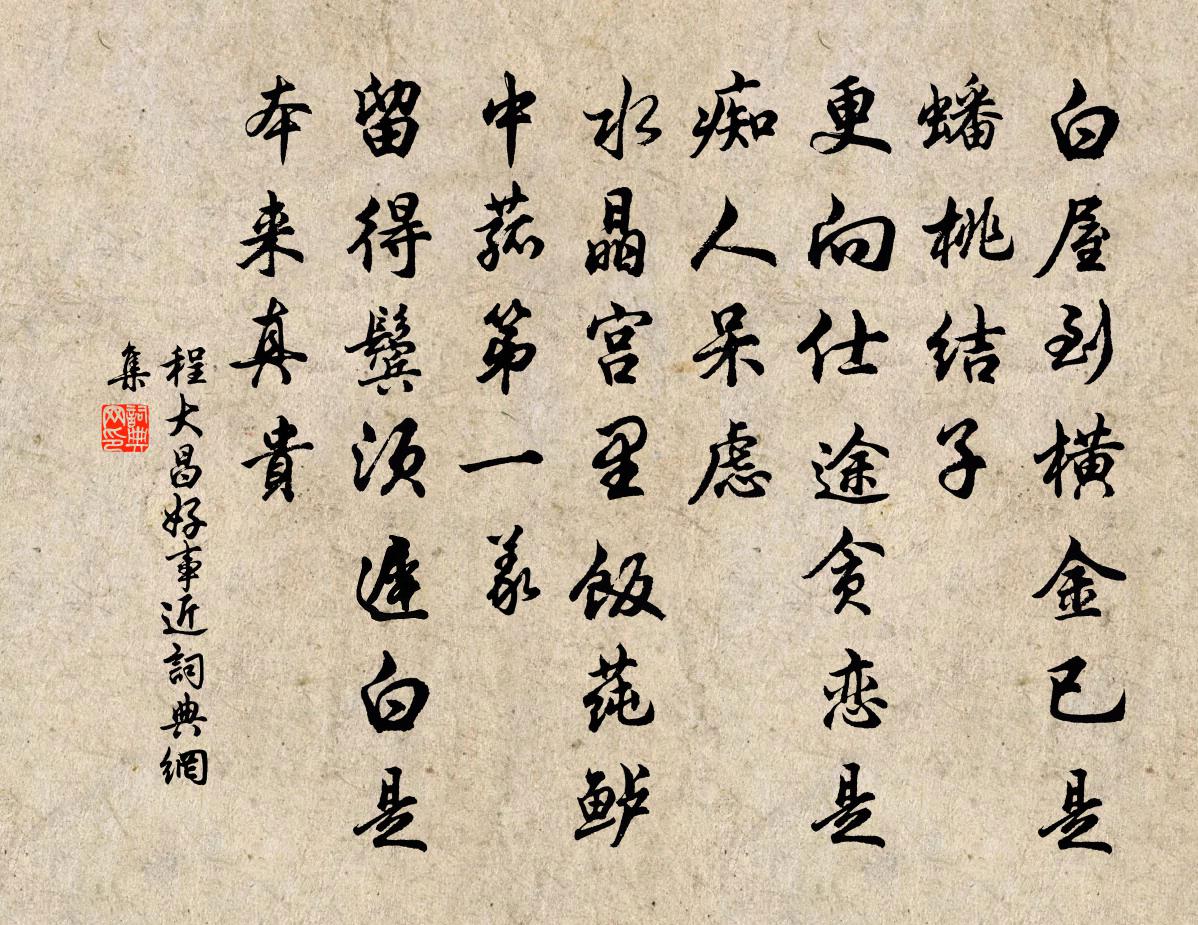 白屋到横金已是
蟠桃结子
更向仕途贪恋是
痴人呆虑
水晶宫里饭莼鲈
中荔第一义
留得鬓须迟白是
本来真貴
程大昌好事近詞典網
集
詞典网印